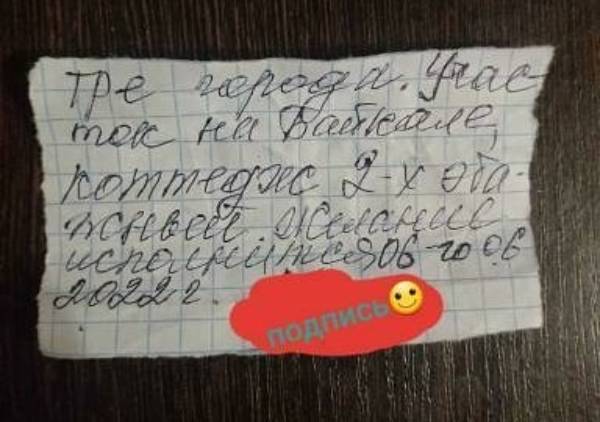 тре города. Учас-
ток на Байкале,
коттедж 2-х эта-
жный. Желание
исполнится 06-го 06
2022 г.
ПОДПИСЬ